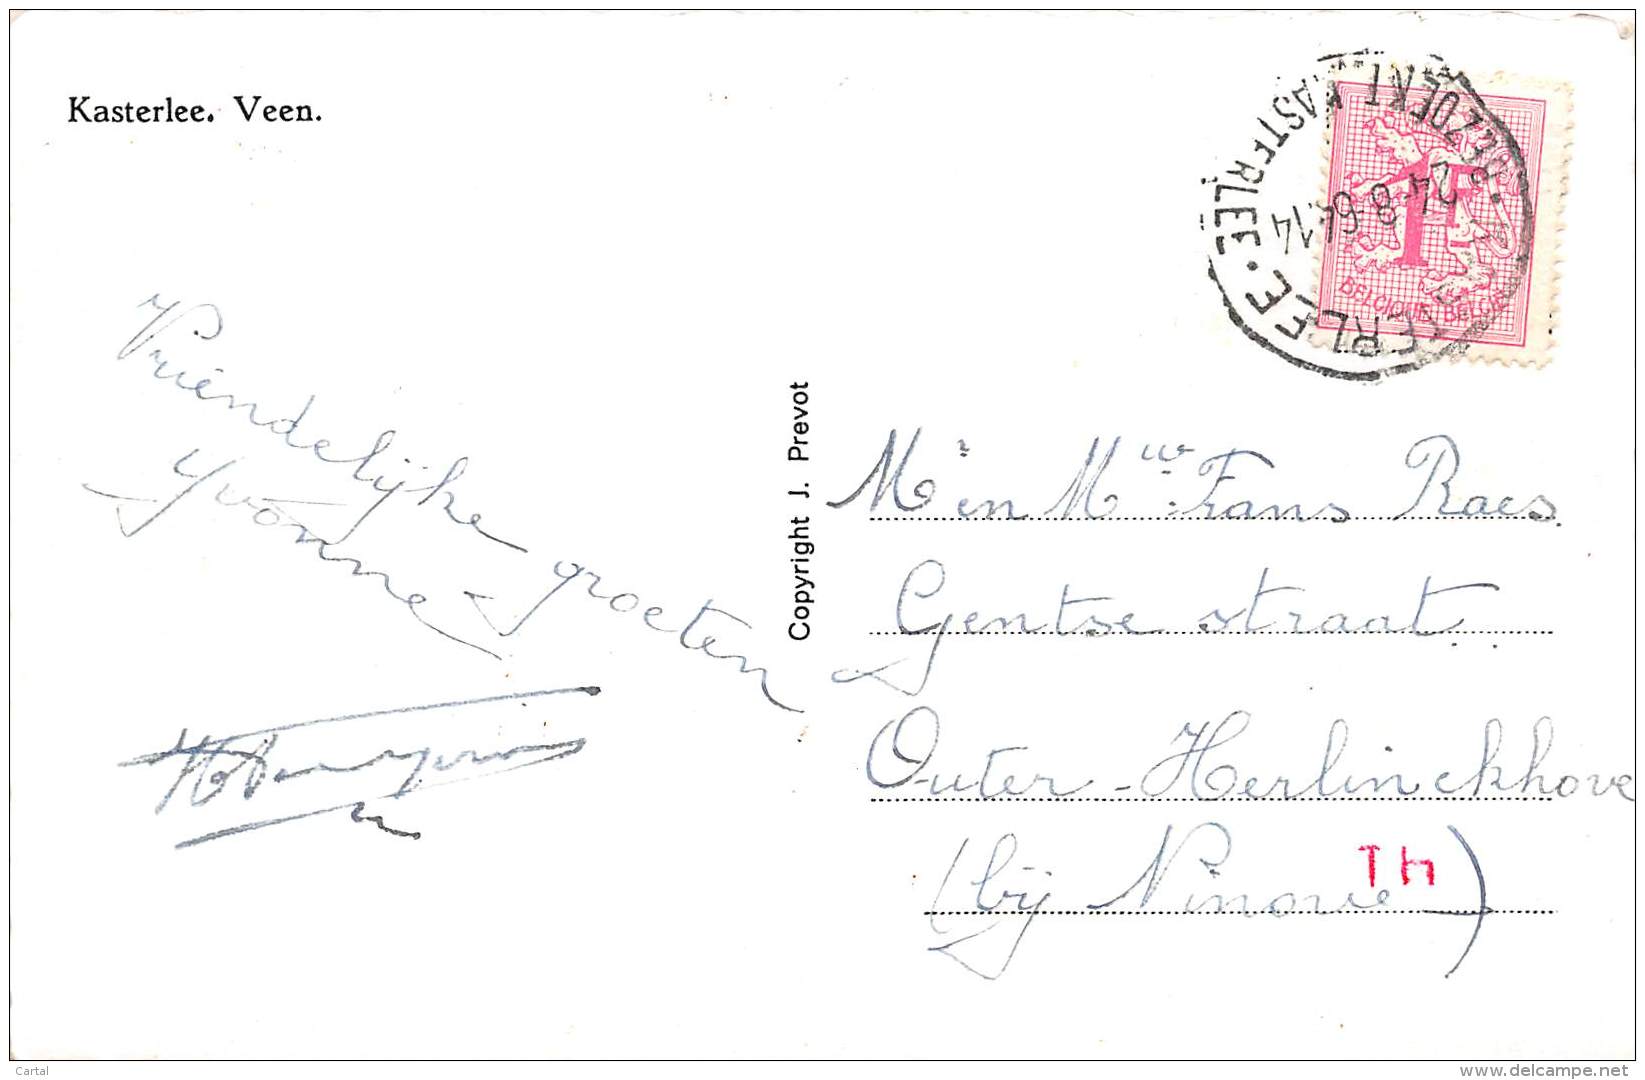 Kasterlee. Veen.
BEZOEKT KASTERLEE. KASTERLEE.
24-8
14
1F
BELGIQUE BELGIE
Vriendelijke groeten
Yvonne
Copyright J. Prevot
Mr en Mw Frans Raes.
Gentse straat.
Outer-Herlinckhove
(bij Ninove)
Cartal
www.delcampe.net